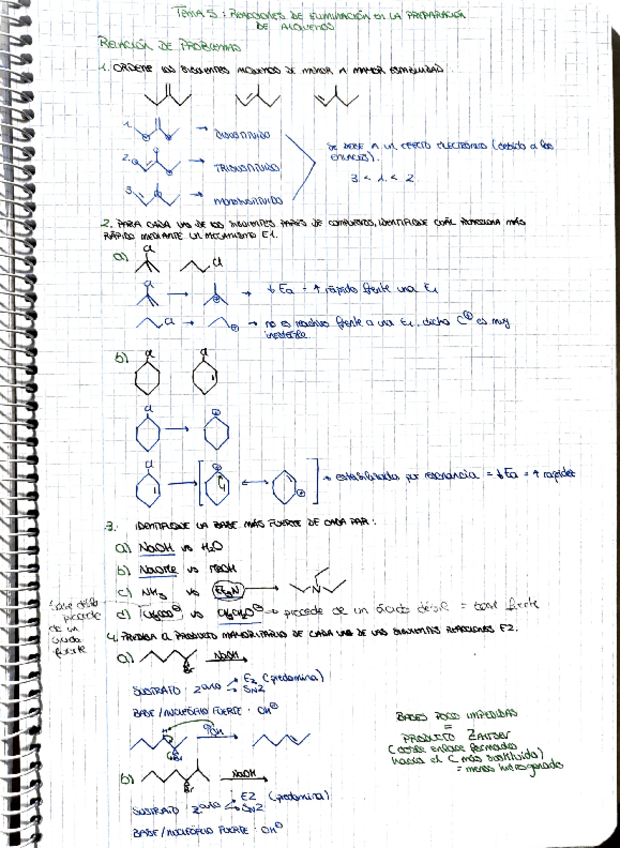 TEMA 5: REACCIONES DE ELIMINACIÓN EN LA PREPARACIÓN
DE ALQUENOS
RELACIÓN DE PROBLEMAS
1. ORDENE LOS SIGUIENTES ALQUENOS DE MENOR A MAYOR ESTABILIDAD:
1. → DISUSTITUIDO
2. → TRISUSTITUIDO
3. → MONOSUSTITUIDO
SE DEBE A UN EFECTO ELECTRÓNICO (debido a los
ENLACES).
3 < 1 < 2
2. PARA CADA UNO DE LOS SIGUIENTES PARES DE COMPUESTOS, IDENTIFIQUE CUÁL REACCIONA MÁS
RÁPIDO MEDIANTE UN MECANISMO E1.
a) Cl Cl
→ ⊕ → ↓ Ea = ↑ rápido frente una E1
Cl → ⊕ → no es reactivo frente a una E1, dicho C⊕ es muy
inestable
b) Cl Cl
Cl → ⊕
Cl → [ ⊕ ↔ ⊕ ] → estabilizado por resonancia = ↓ Ea = ↑ rapidez
3. IDENTIFIQUE LA BASE MÁS FUERTE DE CADA PAR:
a) NaOH vs H2O
b) NaOMe vs MeOH
c) NH3 vs Et3N → N
d) CH3COO⊖ vs CH3CH2O⊖ → procede de un ácido débil = base fuerte
base débil
procede
de un
ácido
fuerte
4. PREDIGA EL PRODUCTO MAYORITARIO DE CADA UNA DE LAS SIGUIENTES REACCIONES E2.
a) Br NaOH
SUSTRATO: 2ario → E2 (predomina)
SN2
BASE/NUCLEÓFILO FUERTE: OH⊖
H ⊖OH
Br
BASES POCO IMPEDIDAS
=
PRODUCTO ZAITSEV
(doble enlace formado
hacia el C más sustituido)
= menos hidrogenado
b) Br NaOH
SUSTRATO 2ario → E2 (predomina)
SN2
BASE/NUCLEÓFILO FUERTE: OH⊖